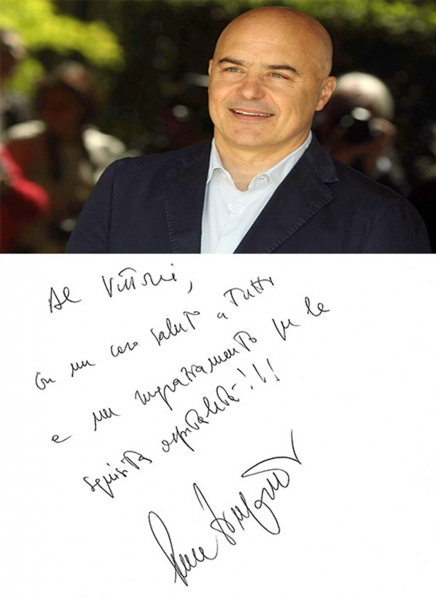 Al Vittoria,
con un caro saluto a tutti
e un ringraziamento per la
squisita ospitalità!!!